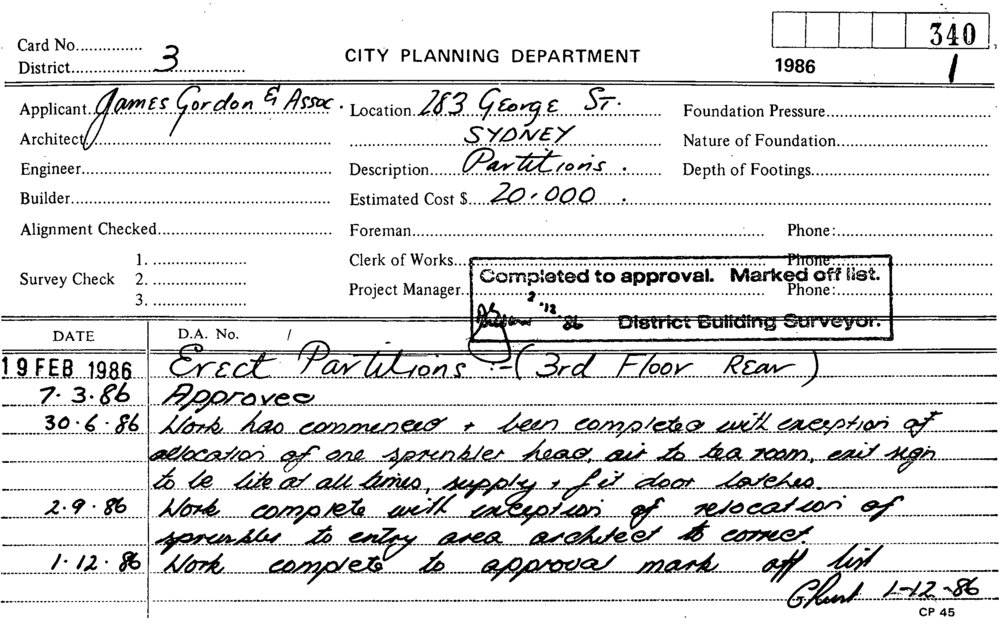 340
Card No...............
District 3
CITY PLANNING DEPARTMENT
1986 1
Applicant James Gordon & Assoc. Location 283 George St. Foundation Pressure
Architect SYDNEY Nature of Foundation
Engineer Description Partitions. Depth of Footings
Builder Estimated Cost $ 20,000.
Alignment Checked Foreman Phone:
1. Clerk of Works Phone:
Survey Check 2. Project Manager Phone:
3.
Completed to approval. Marked off list.
2.12.86 District Building Surveyor.
DATE D.A. No. /
19 FEB 1986 Erect Partitions :- (3rd Floor Rear)
7.3.86 Approved
30.6.86 Work has commenced + been completed with exception of
allocation of one sprinkler head, air to tea room, exit sign
to be lite at all times, supply + fit door latches.
2.9.86 Work complete with exception of relocation of
sprinkler to entry area architect to correct.
1.12.86 Work complete to approval mark off list
1-12-86
CP 45